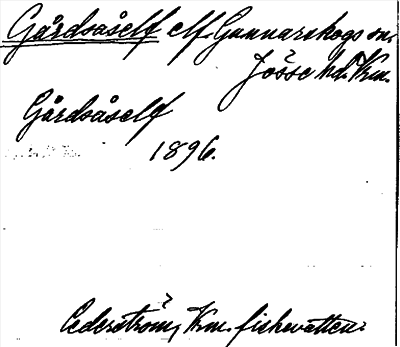 Gårdsåself elf. Gunnarskogs sn,
Jösse hd. Krm.
Gårdsåself
1896.
Cederström, Krm. fiskevatten.